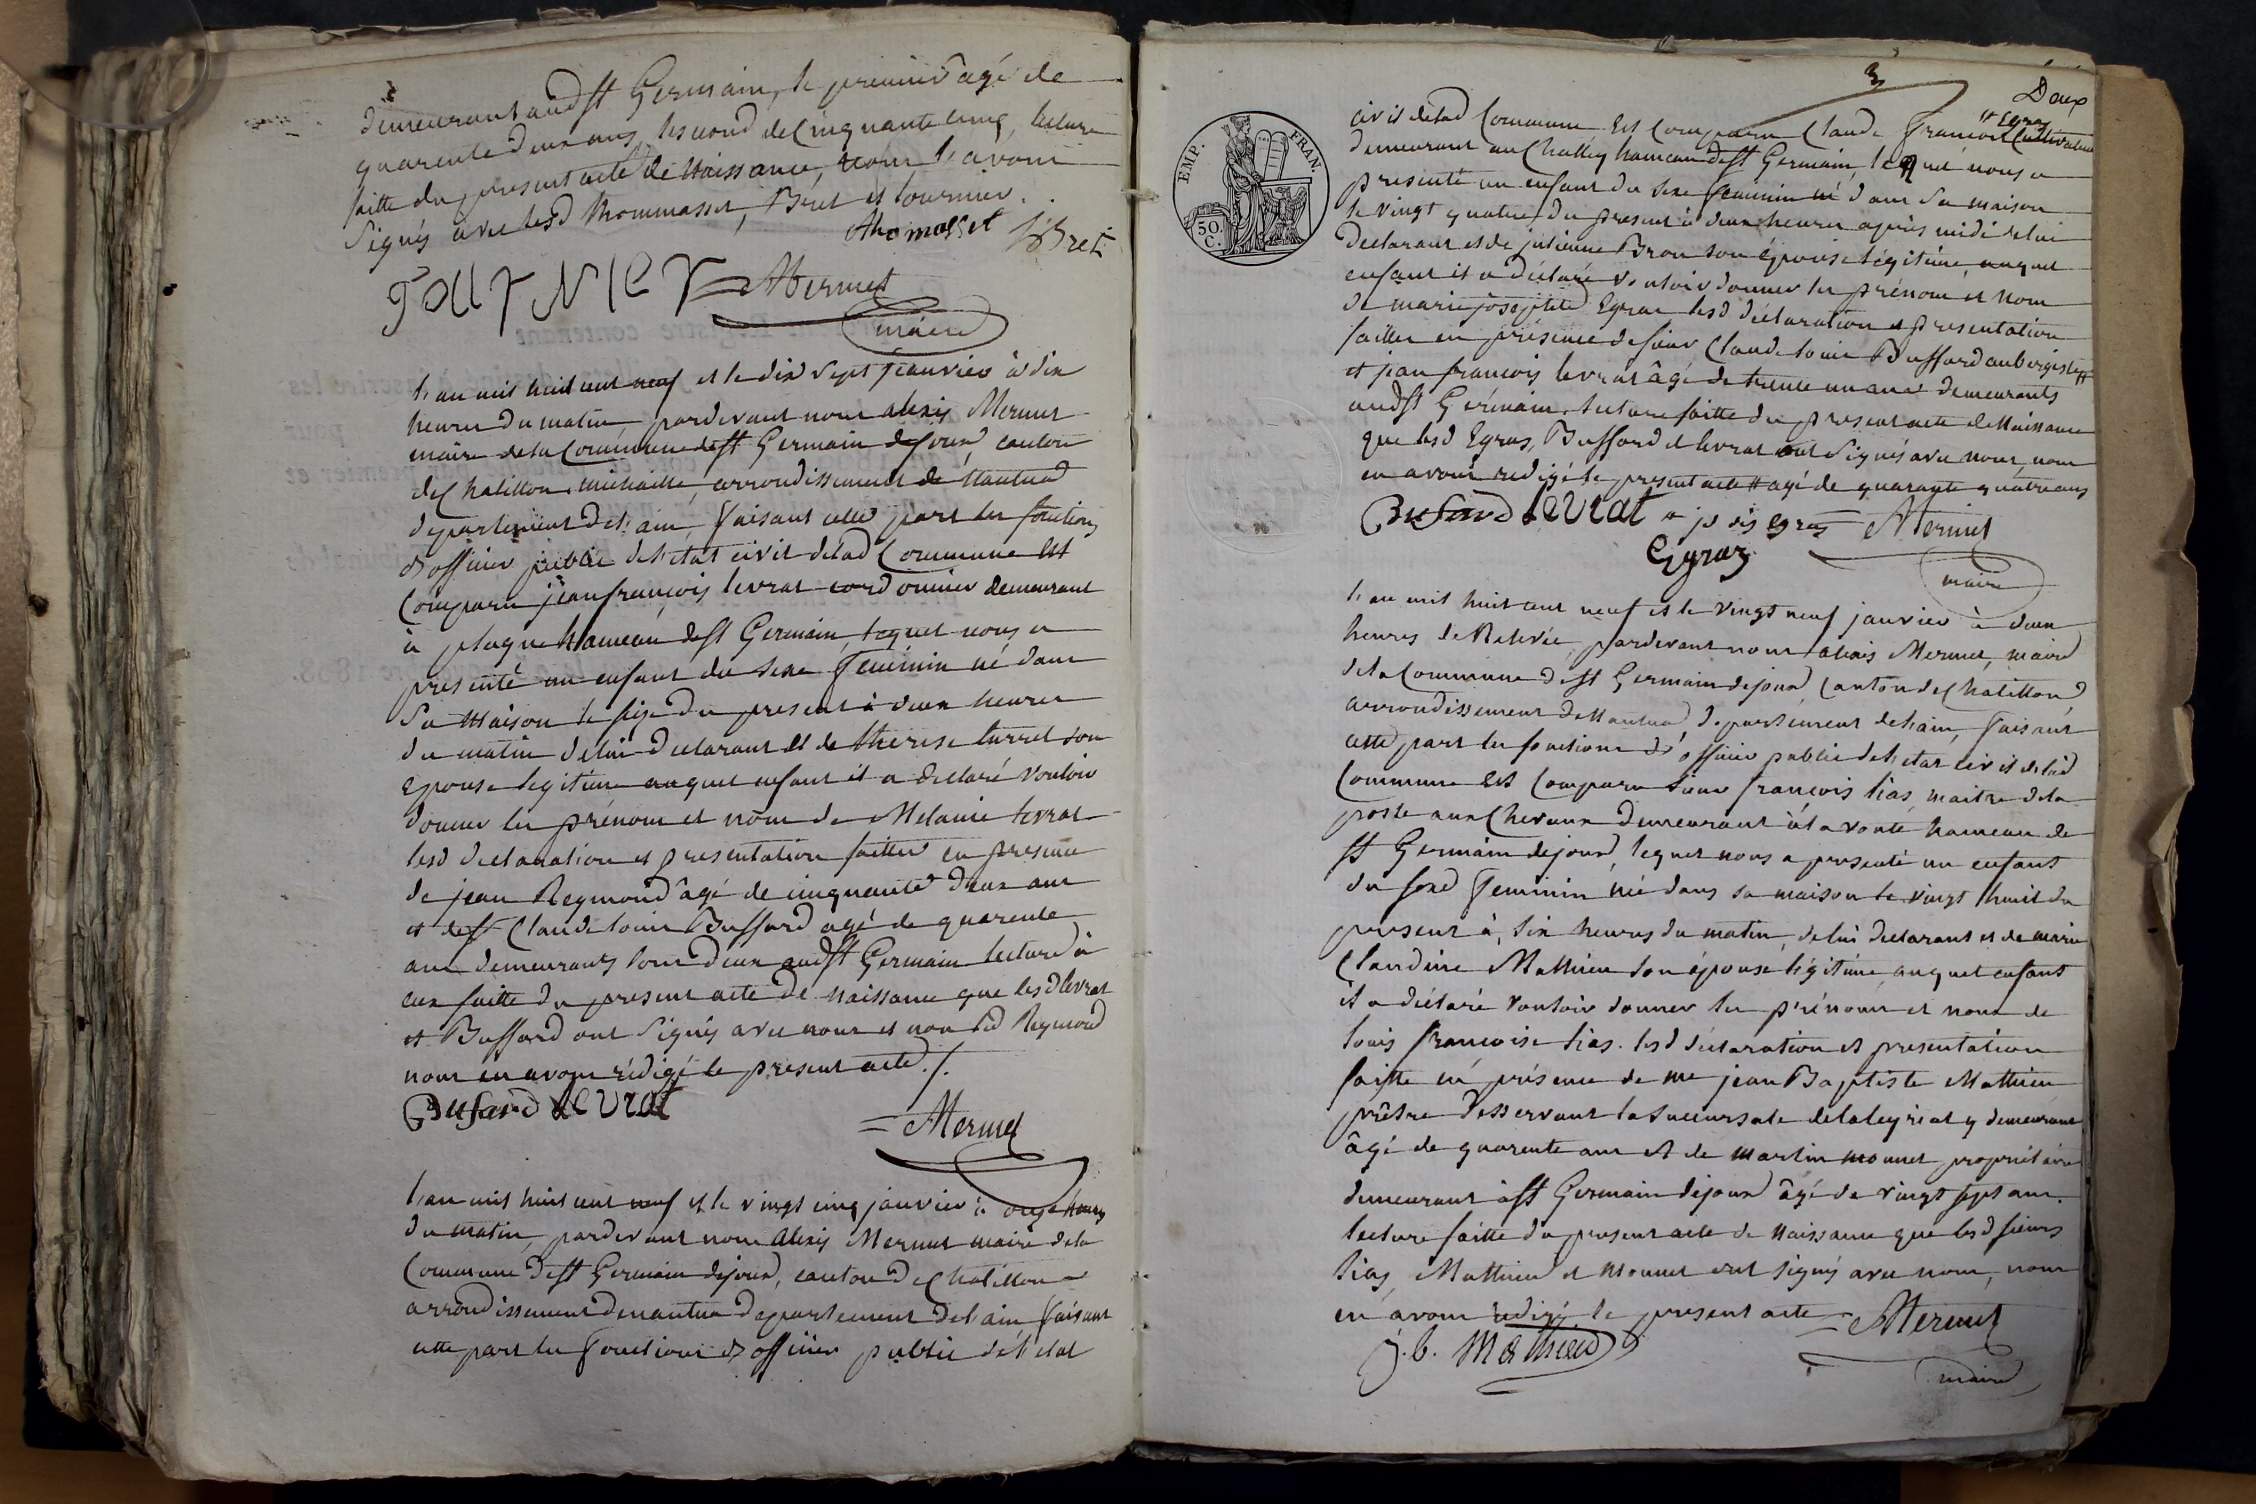 demeurant aud St Germain, le premier âgé de
quarente deux ans, le second de Cinquante cinq, lecture
faitte du present acte de Naissance, nous l'avons
signés avec lesd Thommasset, Bret et tournier.
thomasset Bret
TOURNIER Mermet
maire
L'an mil huit cent neuf et le dix sept janvier à dix
heures du matin, pardevant nous alexis Mermet
maire de la Commune de St Germain de joux, canton
de Chatillon michaille, arrondissement de Nantua
departement de l'ain, faisant cette part les fonctions
d'officier public de l'etat civil de lad Commune Est
Comparu jean françois levrat cordonnier demeurant
à plagne hameau de St Germain, lequel nous a
presenté un enfant du sexe feminin né dans
sa Maison le seize du present à deux heures
du matin de lui declarant et de therese turrel son
epouse legitime auquel enfant il a declaré vouloir
donner les prénom et nom de Melanie levrat
lesd declaration et presentation faittes en presence
de jean Reymond âgé de cinquante deux ans
et de Sr Claude louis Buffard agé de quarente
ans demeurants tous deux aud St Germain lecture à
eux faitte du present acte de naissance que lesd levrat
et Buffard ont signés avec nous et non led Reymond
nous en avons rédigé le present acte ./.
Bufard levrat
Mermet
L'an mil huit cent neuf et le vingt cinq janvier à onze heures
du matin, pardevant nous alexis Mermet maire de la
Commune de St Germain dejoux, canton de Chatillon
arrondissement de nantua departement de l'ain faisant
cette part les fonctions d'officier public de l'etat
3
Deux
EMP. FRAN.
50 C.
civil de lad Commune Est Comparu Claude françois Cultivateur
# Egraz
demeurant au Challey hameau de St Germain, lequel nous a
presenté un enfant du sexe feminin né dans sa maison
le vingt quatre du present à deux heures après midi de lui
declarant et de julienne Bron son épouse légitime, auquel
enfant il a déclaré vouloir donner les prénom et nom
de marie josephte Egraz lesd déclaration et presentation
faittes en présence de sieur Claude louis Buffard aubergiste #
et jean françois levrat âgé de trente un ans demeurants
aud St Germain. lecture faitte du present acte de Naissance
que lesd Egras, Buffard et levrat ont signés avec nous, nous
en avons redigé le present acte # agé de quarante quatre ans
Bufard levrat Mermet
Egraz
maire
L'an mil huit cent neuf et le vingt neuf janvier à deux
heures de Relevée, pardevant nous alexis Mermet, maire
de la Commune de St Germain dejoux Canton de Chatillon
arrondissement de Nantua departement de l'ain, faisant
cette part les fonctions d'officier public de l'etat civil de lad
Commune Est Comparu Sieur françois lias, maitre de la
poste aux Chevaux demeurant à la voute hameau de
St Germain dejoux, lequel nous a presenté un enfant
du sexe feminin né dans sa maison le vingt huit du
present à six heures du matin, de lui declarant et de marie
Claudine Mathieu son épouse légitime, auquel enfant
il a déclaré vouloir donner les prénoms et nom de
louis françoise lias. lesd déclaration et presentation
faitte en présence de me jean Baptiste Mathieu
prêtre desservant la succursale de laleyriat y demeurant
âgé de quarente ans et de martin monnet propriétaire
demeurant à St Germain dejoux âgé de vingt sept ans.
lecture faitte du present acte de naissance que lesd sieurs
lias, Mathieu et Monnet ont signés avec nous, nous
en avons redigé le present acte Mermet
j. b. Mathieu
maire